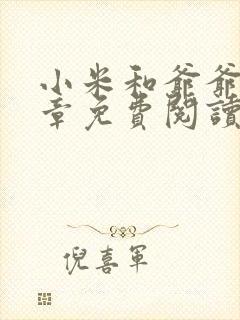 小米和爺爺
章免費閱讀
倪喜軍